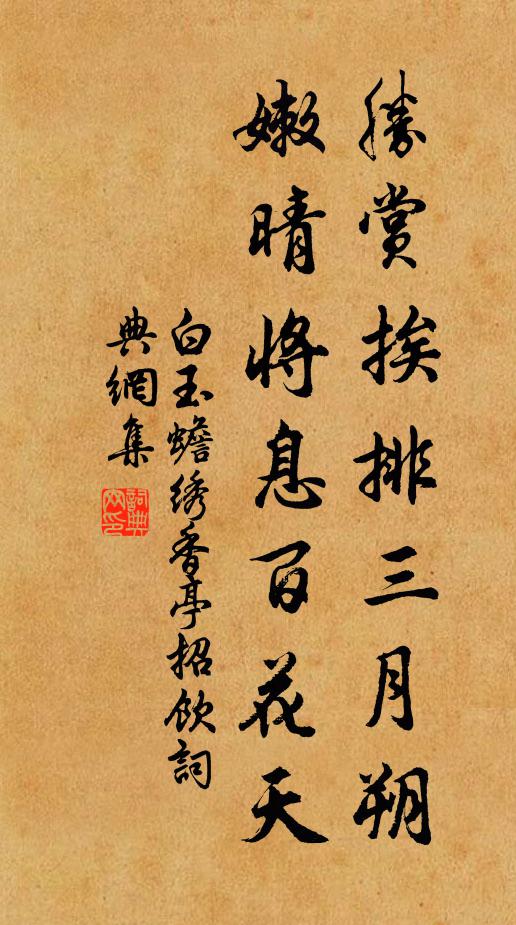 勝賞挨排三月朔
嫩晴將息百花天
白玉蟾绣香亭招飲詞
典網集
詞典網印